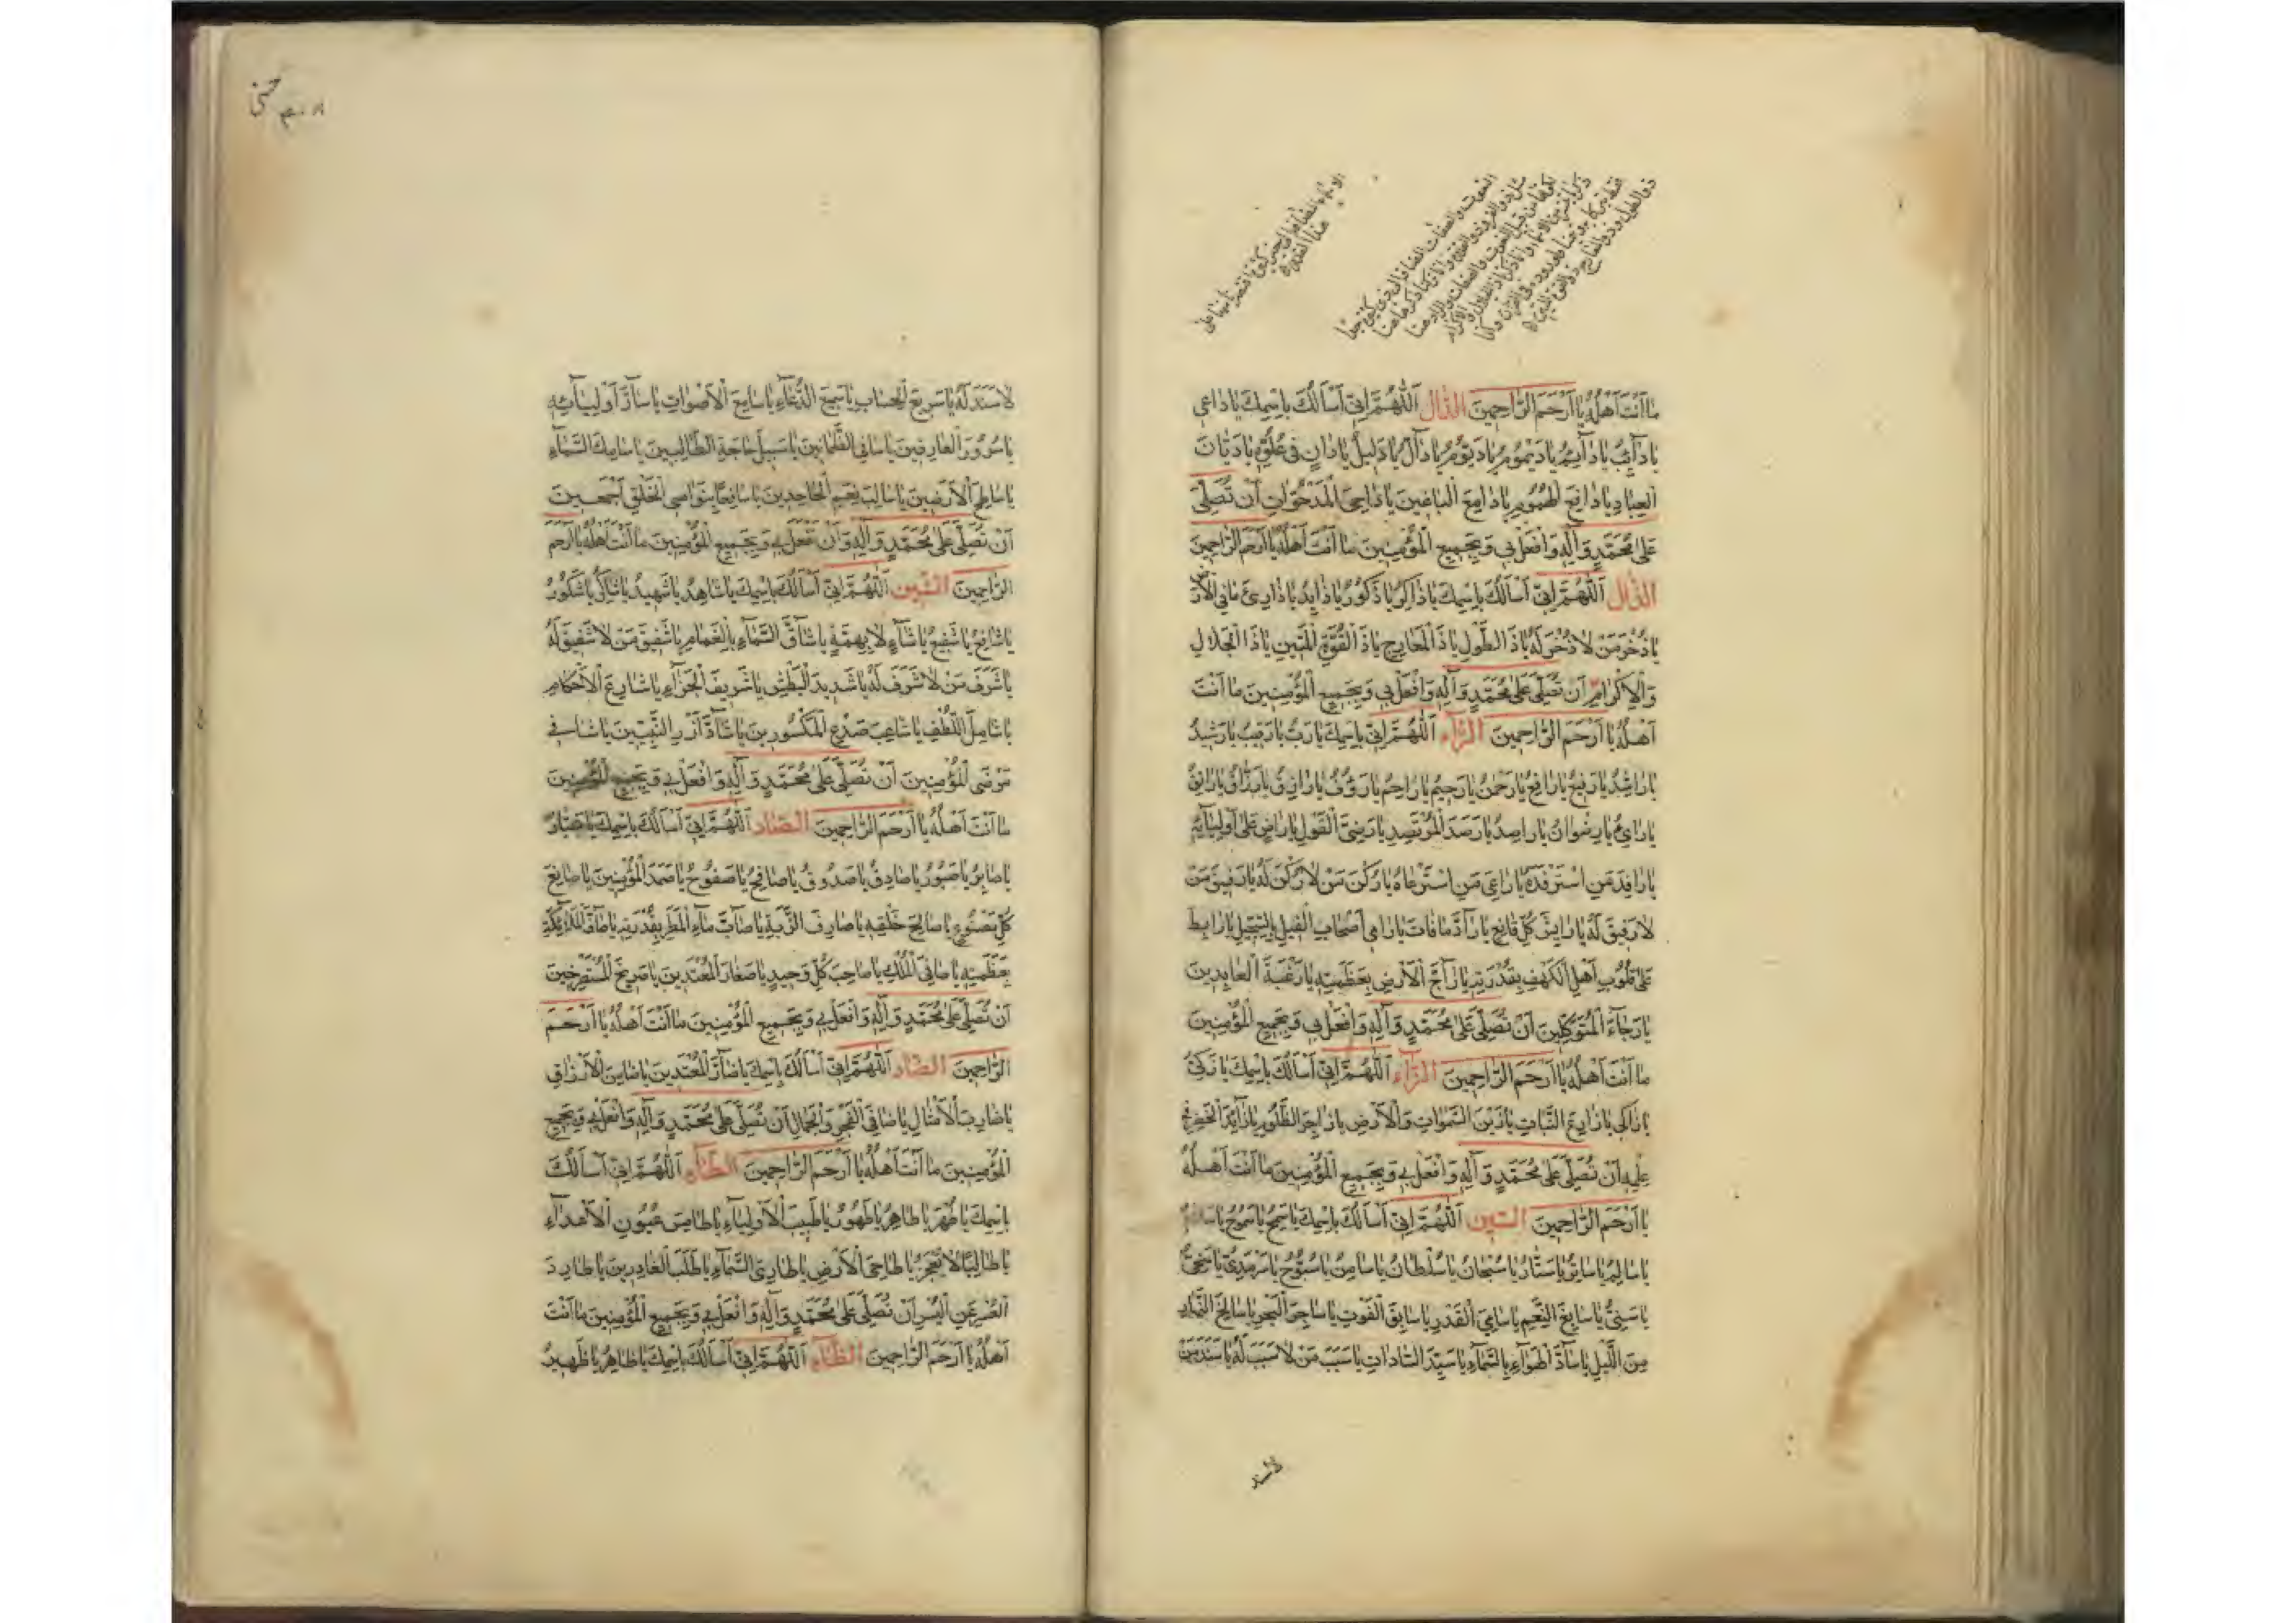 ما أَنْتَ أَهْلُهُ يا أَرْحَمَ الرّاحِمينَ الدّال اَللّهُمَّ إِنّي أَسْأَلُكَ بِاسْمِكَ يا داعي
يا دآئِبُ يا دآئِمُ يا دَيْمُومُ يا دَيُّومُ يا دآلُّ يا دَليلُ يا دانٍ في عُلُوِّهِ يا دَيّانَ
الْعِبادِ يا دافِعَ الْهُمُومِ يا دامِغَ الْباغينَ يا داحِيَ الْمَدْحُوّاتِ أَنْ تُصَلِّيَ
عَلى مُحَمَّدٍ وَآلِهِ وَافْعَلْ بي وَبِجَميعِ الْمُؤْمِنينَ ما أَنْتَ أَهْلُهُ يا أَرْحَمَ الرّاحِمينَ
الذّال اَللّهُمَّ إِنّي أَسْأَلُكَ بِاسْمِكَ يا ذاكِرُ يا ذَكُورُ يا ذايِدُ يا ذارِئَ ما فِي الْأَرْ
يا ذُخْرَ مَنْ لا ذُخْرَ لَهُ يا ذَا الطَّوْلِ يا ذَا الْمَعارِجِ يا ذَا الْقُوَّةِ الْمَتينِ يا ذَا الْجَلالِ
وَالْإِكْرامِ أَنْ تُصَلِّيَ عَلى مُحَمَّدٍ وَآلِهِ وَافْعَلْ بي وَبِجَميعِ الْمُؤْمِنينَ ما أَنْتَ
أَهْلُهُ يا أَرْحَمَ الرّاحِمينَ الرّآء اَللّهُمَّ إِنّي بِاسْمِكَ يا رَبُّ يا رَقيبُ يا رَشيدُ
يا راشِدُ يا رَفيعُ يا رافِعُ يا رَحْمنُ يا رَحيمُ يا راحِمُ يا رَؤُفُ يا رازِقُ يا رَزّاقُ يا رائِقُ
يا رائي يا رِضْوانُ يا راصِدُ يا رَصَدَ الْمُرْتَصِدِ يا رَضِيَّ الْقَوْلِ يا راضٍ عَلى أَوْلِيآئِهِ
يا رافِدَ مَنِ اسْتَرْفَدَهُ يا راعِيَ مَنِ اسْتَرْعاهُ يا رُكْنَ مَنْ لا رُكْنَ لَهُ يا رَفيقَ مَنْ
لا رَفيقَ لَهُ يا رايِشَ كُلِّ قانِعٍ يا رآدَّ ما فاتَ يا رامِيَ أَصْحابِ الْفيلِ بِالسِّجّيلِ يا رابِطَ
عَلى قُلُوبِ أَهْلِ الْكَهْفِ بِقُدْرَتِهِ يا رآجَّ الْأَرْضِ بِعَظَمَتِهِ يا رَغْبَةَ الْعابِدينَ
يا رَجآءَ الْمُتَوَكِّلينَ أَنْ تُصَلِّيَ عَلى مُحَمَّدٍ وَآلِهِ وَافْعَلْ بي وَبِجَميعِ الْمُؤْمِنينَ
ما أَنْتَ أَهْلُهُ يا أَرْحَمَ الرّاحِمينَ الزّآء اَللّهُمَّ إِنّي أَسْأَلُكَ بِاسْمِكَ يا زَكِيُّ
يا زاكي يا زارِعَ النَّباتِ يا زَيْنَ السَّمواتِ وَالْأَرْضِ يا زاجِرَ الظَّلُومِ يا زآئِدَ الْخَضِرِ في
عِلْمِهِ أَنْ تُصَلِّيَ عَلى مُحَمَّدٍ وَآلِهِ وَافْعَلْ بي وَبِجَميعِ الْمُؤْمِنينَ ما أَنْتَ أَهْلُهُ
يا أَرْحَمَ الرّاحِمينَ السّين اَللّهُمَّ إِنّي أَسْأَلُكَ بِاسْمِكَ يا سَمْحُ يا سَمُوحُ يا سَلامُ
يا سالِمُ يا ساتِرُ يا سَتّارُ يا سُبْحانُ يا سُلْطانُ يا سامِنُ يا سُبُّوحُ يا سَرْمَدِيُّ يا سَخِيُّ
يا سَنِيُّ يا سابِغَ النِّعَمِ يا سامِيَ الْقَدْرِ يا سابِقَ الْفَوْتِ يا ساجِرَ الْبَحْرِ يا سالِخَ النَّهارِ
مِنَ اللَّيْلِ يا سآدَّ الْهَوآءِ بِالسَّمآءِ يا سَيِّدَ السّاداتِ يا سَبَبَ مَنْ لا سَبَبَ لَهُ يا سَنَدَ مَنْ
لا سند
لا سَنَدَ لَهُ يا سَريعَ الْحِسابِ يا سَميعَ الدُّعآءِ يا سامِعَ الْأَصْواتِ يا سآرَّ أَوْلِيآئِهِ
يا سُرُورَ الْعارِفينَ يا ساقِيَ الظَّمْانينَ يا سَبيلَ حاجَةِ الطّالِبينَ يا سامِكَ السَّمآءِ
يا ساطِحَ الْأَرَضينَ يا سالِبَ نِعَمِ الْجاحِدينَ يا سافِعًا بِنَواصِي الْخَلْقِ أَجْمَعينَ
أَنْ تُصَلِّيَ عَلى مُحَمَّدٍ وَآلِهِ وَأَنْ تَفْعَلَ بي وَبِجَميعِ الْمُؤْمِنينَ ما أَنْتَ أَهْلُهُ يا أَرْحَمَ
الرّاحِمينَ الشّين اَللّهُمَّ إِنّي أَسْأَلُكَ بِاسْمِكَ يا شاهِدُ يا شَهيدُ يا شاكِرُ يا شَكُورُ
يا شافِعُ يا شَفيعُ يا شآءٍ لا بِهِمَّةٍ يا شآقَّ السَّمآءِ بِالْغَمامِ يا شَفيقَ مَنْ لا شَفيقَ لَهُ
يا شَرَفَ مَنْ لا شَرَفَ لَهُ يا شَديدَ الْبَطْشِ يا شَريفَ الْجَزآءِ يا شارِعَ الْأَحْكامِ
يا شامِلَ اللُّطْفِ يا شاعِبَ صَدْعِ الْمَكْسُورينَ يا شآدَّ أَزْرِ النَّبِيّينَ يا شافِيَ
مَرْضَى الْمُؤْمِنينَ أَنْ تُصَلِّيَ عَلى مُحَمَّدٍ وَآلِهِ وَافْعَلْ بي وَبِجَميعِ الْمُؤْمِنينَ
ما أَنْتَ أَهْلُهُ يا أَرْحَمَ الرّاحِمينَ الصّاد اَللّهُمَّ إِنّي أَسْأَلُكَ بِاسْمِكَ يا صَبّارُ
يا صابِرُ يا صَبُورُ يا صادِقُ يا صَدُوقُ يا صافِحُ يا صَفُوحُ يا صَمَدَ الْمُؤْمِنينَ يا صانِعَ
كُلِّ مَصْنُوعٍ يا صالِحَ خَلْقِهِ يا صارِفَ اللَّزْبَةِ يا صآبَّ مآءِ الْمَطَرِ بِقُدْرَتِهِ يا صآفَّ الْمَلآئِكَةِ
بِعَظَمَتِهِ يا صافِيَ الْمُلْكِ يا صاحِبَ كُلِّ وَحيدٍ يا صَغارَ الْمُعْتَدينَ يا صَريخَ الْمُسْتَصْرِخينَ
أَنْ تُصَلِّيَ عَلى مُحَمَّدٍ وَآلِهِ وَافْعَلْ بي وَبِجَميعِ الْمُؤْمِنينَ ما أَنْتَ أَهْلُهُ يا أَرْحَمَ
الرّاحِمينَ الضّاد اَللّهُمَّ إِنّي أَسْأَلُكَ بِاسْمِكَ يا ضآرَّ الْمُعْتَدينَ يا ضامِنَ الْأَرْزاقِ
يا ضارِبَ الْأَمْثالِ يا ضافِيَ الْفَخْرِ وَالْجَمالِ أَنْ تُصَلِّيَ عَلى مُحَمَّدٍ وَآلِهِ وَافْعَلْ بي وَبِجَميعِ
الْمُؤْمِنينَ ما أَنْتَ أَهْلُهُ يا أَرْحَمَ الرّاحِمينَ الطّآء اَللّهُمَّ إِنّي أَسْأَلُكَ
بِاسْمِكَ يا طُهْرُ يا طاهِرُ يا طَهُورُ يا طَبيبَ الْأَوْلِيآءِ يا طامِسَ عُيُونِ الْأَعْدآءِ
يا طالِبًا لا يَعْجَزُ يا طاحِيَ الْأَرْضِ يا طاوِيَ السَّمآءِ يا طَلَبَ الْغادِرينَ يا طارِدَ
الْعُسْرِ عَنِ الْيُسْرِ أَنْ تُصَلِّيَ عَلى مُحَمَّدٍ وَآلِهِ وَافْعَلْ بي وَبِجَميعِ الْمُؤْمِنينَ ما أَنْتَ
أَهْلُهُ يا أَرْحَمَ الرّاحِمينَ الظّآء اَللّهُمَّ إِنّي أَسْأَلُكَ بِاسْمِكَ يا ظاهِرُ يا ظَهيرُ